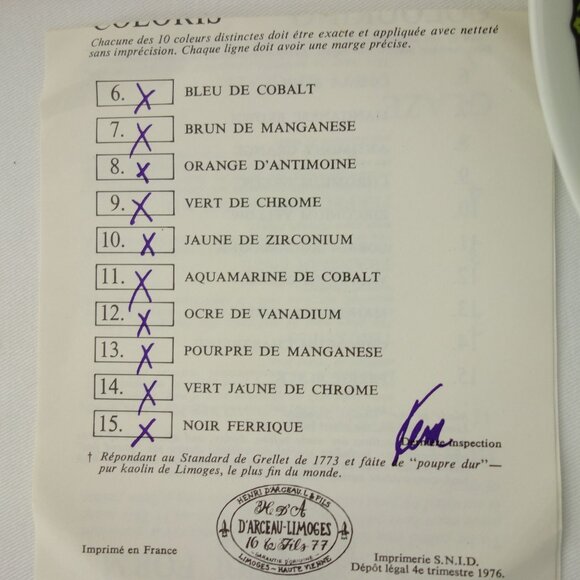 COLORIS
Chacune des 10 couleurs distinctes doit être exacte et appliquée avec netteté
sans imprécision. Chaque ligne doit avoir une marge précise.
6. X BLEU DE COBALT
7. X BRUN DE MANGANESE
8. X ORANGE D'ANTIMOINE
9. X VERT DE CHROME
10. X JAUNE DE ZIRCONIUM
11. X AQUAMARINE DE COBALT
12. X OCRE DE VANADIUM
13. X POURPRE DE MANGANESE
14. X VERT JAUNE DE CHROME
15. X NOIR FERRIQUE
Dernière inspection
† Répondant au Standard de Grellet de 1773 et fâite de "poupre dur"—
pur kaolin de Limoges, le plus fin du monde.
HENRI D'ARCEAU L. & FILS
H D'A
D'ARCEAU-LIMOGES
16 & Fils 77
GARANTIE D'ORIGINE
LIMOGES - HAUTE VIENNE
Imprimé en France
Imprimerie S.N.I.D.
Dépôt légal 4e trimestre 1976.